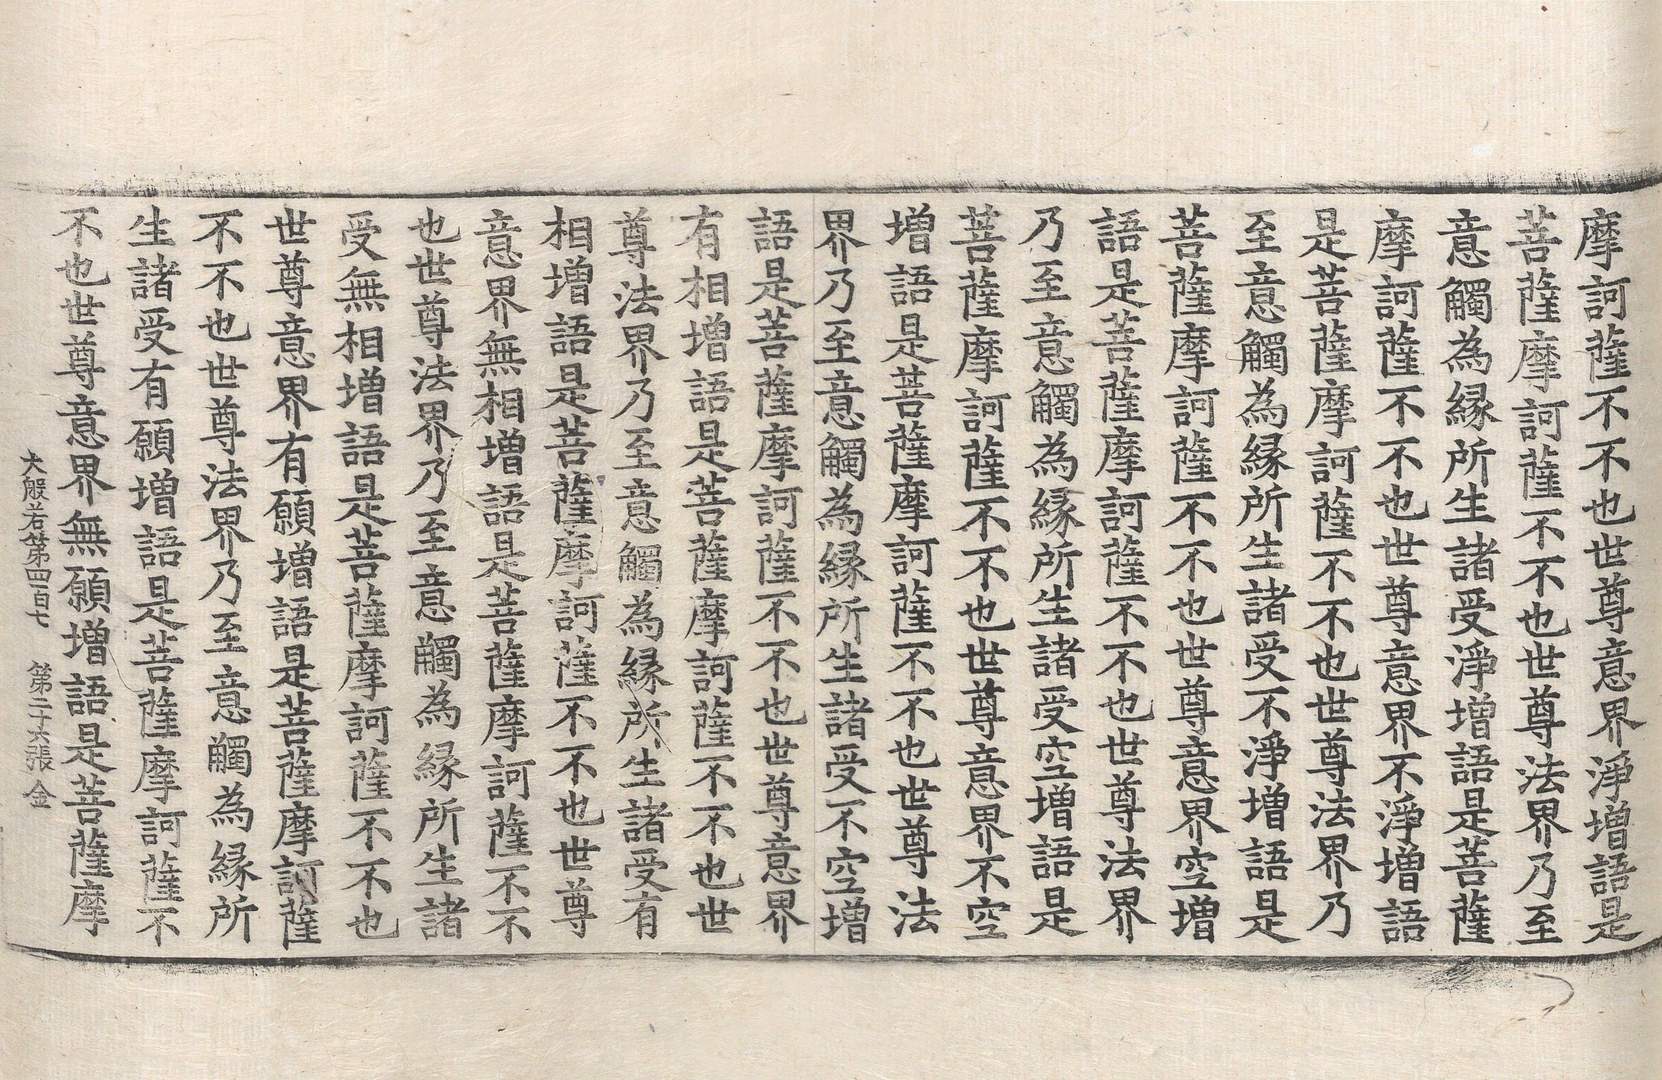 摩訶薩不不也世尊意界淨增語是
菩薩摩訶薩不不也世尊法界乃至
意觸為緣所生諸受淨增語是菩薩
摩訶薩不不也世尊意界不淨增語
是菩薩摩訶薩不不也世尊法界乃
至意觸為緣所生諸受不淨增語是
菩薩摩訶薩不不也世尊意界空增
語是菩薩摩訶薩不不也世尊法界
乃至意觸為緣所生諸受空增語是
菩薩摩訶薩不不也世尊意界不空
增語是菩薩摩訶薩不不也世尊法
界乃至意觸為緣所生諸受不空增
語是菩薩摩訶薩不不也世尊意界
有相增語是菩薩摩訶薩不不也世
尊法界乃至意觸為緣所生諸受有
相增語是菩薩摩訶薩不不也世尊
意界無相增語是菩薩摩訶薩不不
也世尊法界乃至意觸為緣所生諸
受無相增語是菩薩摩訶薩不不也
世尊意界有願增語是菩薩摩訶薩
不不也世尊法界乃至意觸為緣所
生諸受有願增語是菩薩摩訶薩不
不也世尊意界無願增語是菩薩摩
大般若第四百七 第二十六張 金